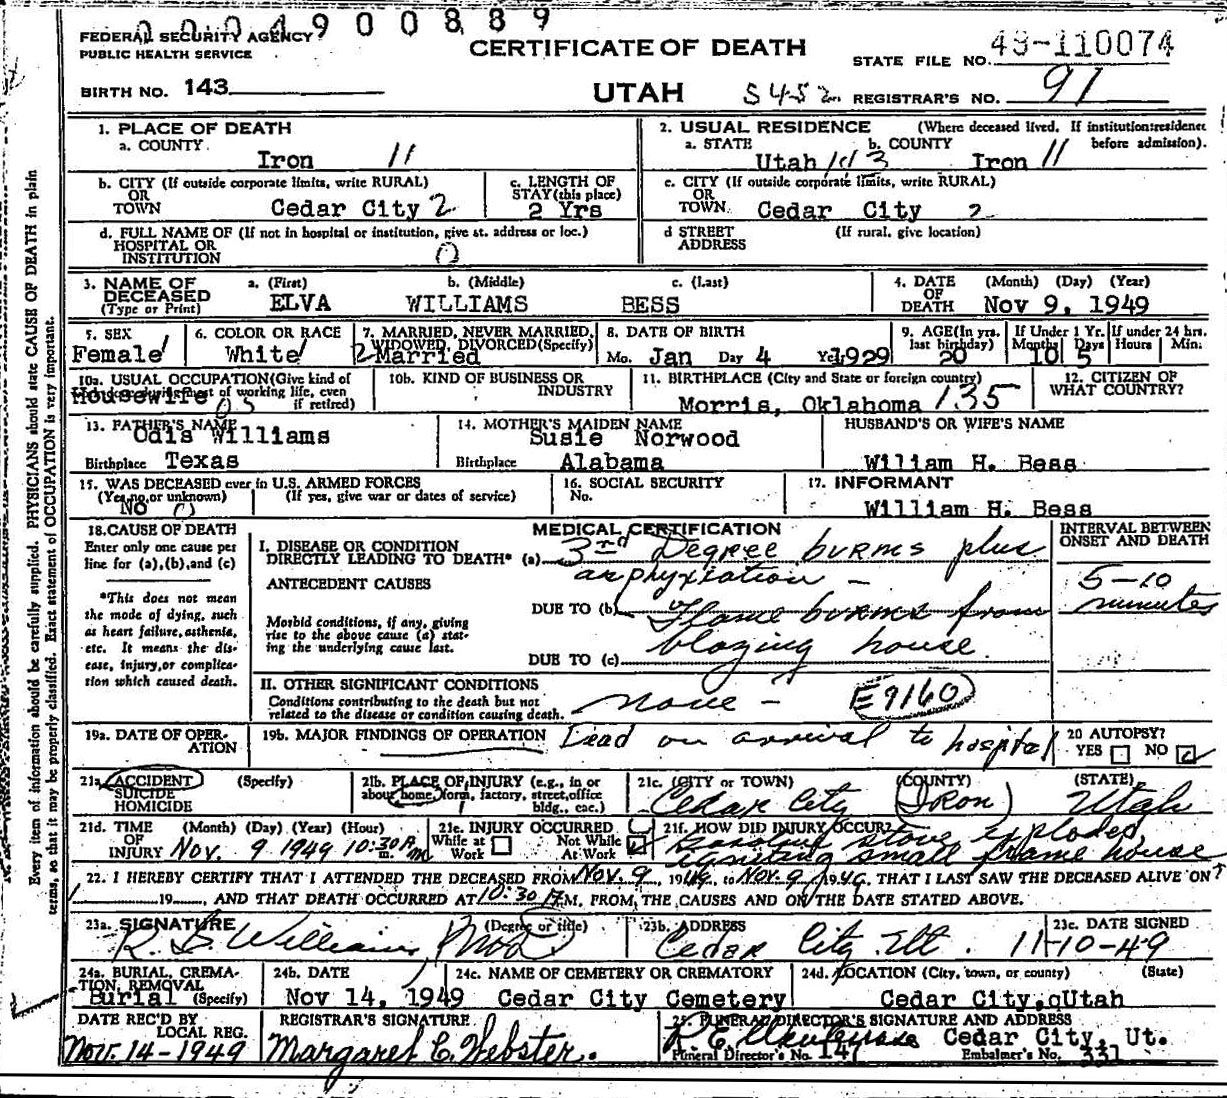 0004900889
FEDERAL SECURITY AGENCY
PUBLIC HEALTH SERVICE
CERTIFICATE OF DEATH
STATE FILE NO. 49-110074
BIRTH NO. 143
UTAH S452 REGISTRAR'S NO. 91
1. PLACE OF DEATH
a. COUNTY
Iron 11
2. USUAL RESIDENCE (Where deceased lived. If institution:residence before admission).
a. STATE b. COUNTY
Utah Iron 11
b. CITY (If outside corporate limits, write RURAL)
OR
TOWN Cedar City 2
c. LENGTH OF
STAY (this place)
2 Yrs
c. CITY (If outside corporate limits, write RURAL)
OR
TOWN. Cedar City 2
d. FULL NAME OF (If not in hospital or institution, give st. address or loc.)
HOSPITAL OR
INSTITUTION 0
d STREET (If rural, give location)
ADDRESS
3. NAME OF DECEASED (Type or Print)
a. (First) b. (Middle) c. (Last)
ELVA WILLIAMS BESS
4. DATE OF DEATH (Month) (Day) (Year)
Nov 9, 1949
5. SEX
Female 1
6. COLOR OR RACE
White 1
7. MARRIED, NEVER MARRIED,
WIDOWED, DIVORCED (Specify)
2 Married
8. DATE OF BIRTH
Mo. Jan Day 4 Yr. 1929
9. AGE (In yrs. last birthday)
20
If Under 1 Yr. Months Days
10 5
If under 24 hrs. Hours Min.
10a. USUAL OCCUPATION (Give kind of
work done during most of working life, even
if retired)
Housewife 05
10b. KIND OF BUSINESS OR
INDUSTRY
11. BIRTHPLACE (City and State or foreign country)
Morris, Oklahoma 135
12. CITIZEN OF
WHAT COUNTRY?
13. FATHER'S NAME
Odis Williams
Birthplace Texas
14. MOTHER'S MAIDEN NAME
Susie Norwood
Birthplace Alabama
HUSBAND'S OR WIFE'S NAME
William H. Bess
15. WAS DECEASED ever in U.S. ARMED FORCES
(Yes, no, or unknown) (If yes, give war or dates of service)
No 0
16. SOCIAL SECURITY
No.
17. INFORMANT
William H. Bess
18. CAUSE OF DEATH
Enter only one cause per
line for (a), (b), and (c)
*This does not mean
the mode of dying, such
as heart failure, asthenia,
etc. It means the dis-
ease, injury, or complica-
tion which caused death.
MEDICAL CERTIFICATION
INTERVAL BETWEEN
ONSET AND DEATH
I. DISEASE OR CONDITION
DIRECTLY LEADING TO DEATH* (a) 3rd Degree burns plus
asphyxiation -
5-10
minutes
ANTECEDENT CAUSES
Morbid conditions, if any, giving
rise to the above cause (a) stat-
ing the underlying cause last.
DUE TO (b) Flame burns from
blazing house.
DUE TO (c)
II. OTHER SIGNIFICANT CONDITIONS
Conditions contributing to the death but not
related to the disease or condition causing death.
none - E9160
19a. DATE OF OPER-
ATION
19b. MAJOR FINDINGS OF OPERATION
Dead on arrival to hospital
20 AUTOPSY?
YES NO
21a. ACCIDENT (Specify)
SUICIDE
HOMICIDE
21b. PLACE OF INJURY (e.g., in or
about home, farm, factory, street, office
bldg., etc.)
21c. (CITY or TOWN) (COUNTY) (STATE)
Cedar City Iron Utah
21d. TIME OF INJURY (Month) (Day) (Year) (Hour)
Nov. 9 1949 10:30 m.
21e. INJURY OCCURRED
While at Work Not While At Work
21f. HOW DID INJURY OCCUR?
Gasoline stove exploded,
igniting small frame house.
22. I HEREBY CERTIFY THAT I ATTENDED THE DECEASED FROM Nov. 9, 1949, to Nov. 9, 1949. THAT I LAST SAW THE DECEASED ALIVE ON ?
19, AND THAT DEATH OCCURRED AT 10:30 M. FROM, THE CAUSES AND ON THE DATE STATED ABOVE.
23a. SIGNATURE (Degree or title)
Williams
23b. ADDRESS
Cedar City Ut.
23c. DATE SIGNED
11-10-49
24a. BURIAL, CREMA-
TION, REMOVAL
Burial (Specify)
24b. DATE
Nov 14, 1949
24c. NAME OF CEMETERY OR CREMATORY
Cedar City Cemetery
24d. LOCATION (City, town, or county) (State)
Cedar City, Utah
DATE REC'D BY
LOCAL REG.
Nov. 14-1949
REGISTRAR'S SIGNATURE
Margaret C. Webster.
25. FUNERAL DIRECTOR'S SIGNATURE AND ADDRESS
Cedar City, Ut.
Funeral Director's No. 141 Embalmer's No. 331
Every item of information should be carefully supplied. PHYSICIANS should state CAUSE OF DEATH in plain
terms, so that it may be properly classified. Exact statement of OCCUPATION is very important.